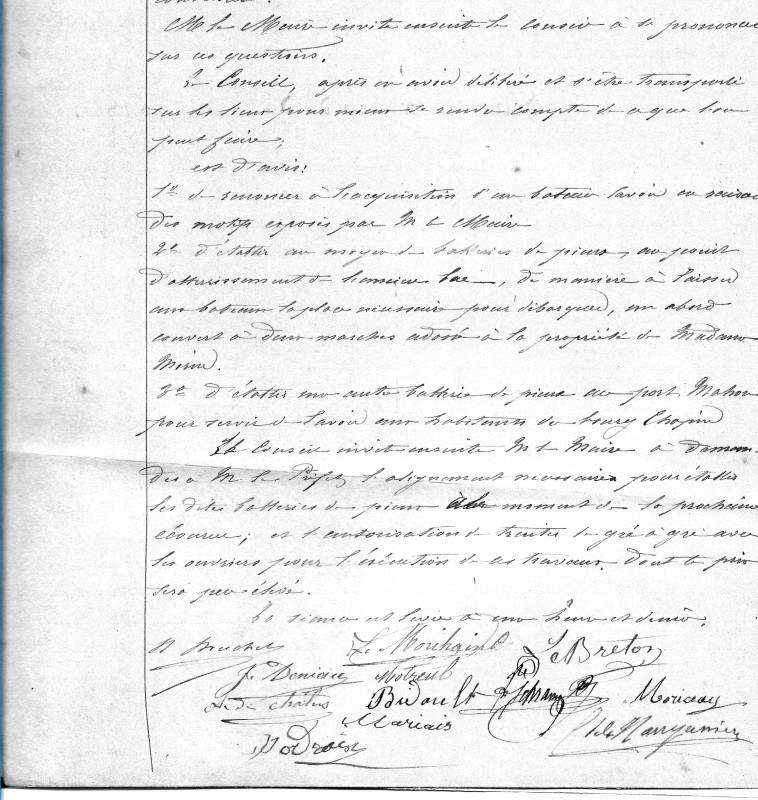 M le Maire invite ensuite le conseil à se prononcer
sur ces questions.
Le Conseil, après en avoir délibéré et s'être transporté
sur les lieux pour mieux se rendre compte de ce que l'on
peut faire,
est d'avis:
1º de renoncer à l'acquisition d'un bateau lavoir en raison
des motifs exposés par M le Maire
2º d'établir au moyen de batteries de pieux, au point
d'atterrissement de l'ancien bac, de manière à laisser
aux bateaux la place nécessaire pour débarquer, un abord
couvert à deux marches adossé à la propriété de Madame
3º d'établir une autre batterie de pieux au port Mahon
pour servir de lavoir aux habitants du bourg Chapin
Le Conseil invite ensuite M le Maire à deman-
der à M le Préfet l'alignement nécessaire pour établir
les dites batteries de pieux au moment de la prochaine
écourue; et l'autorisation de traiter de gré à gré avec
les ouvriers pour l'exécution de ces travaux dont le prix
sera peu élevé.
La séance est levée à une heure et demie.
Le Breton
J. Deniau Motreul
Bidault Moriceau
Mariais